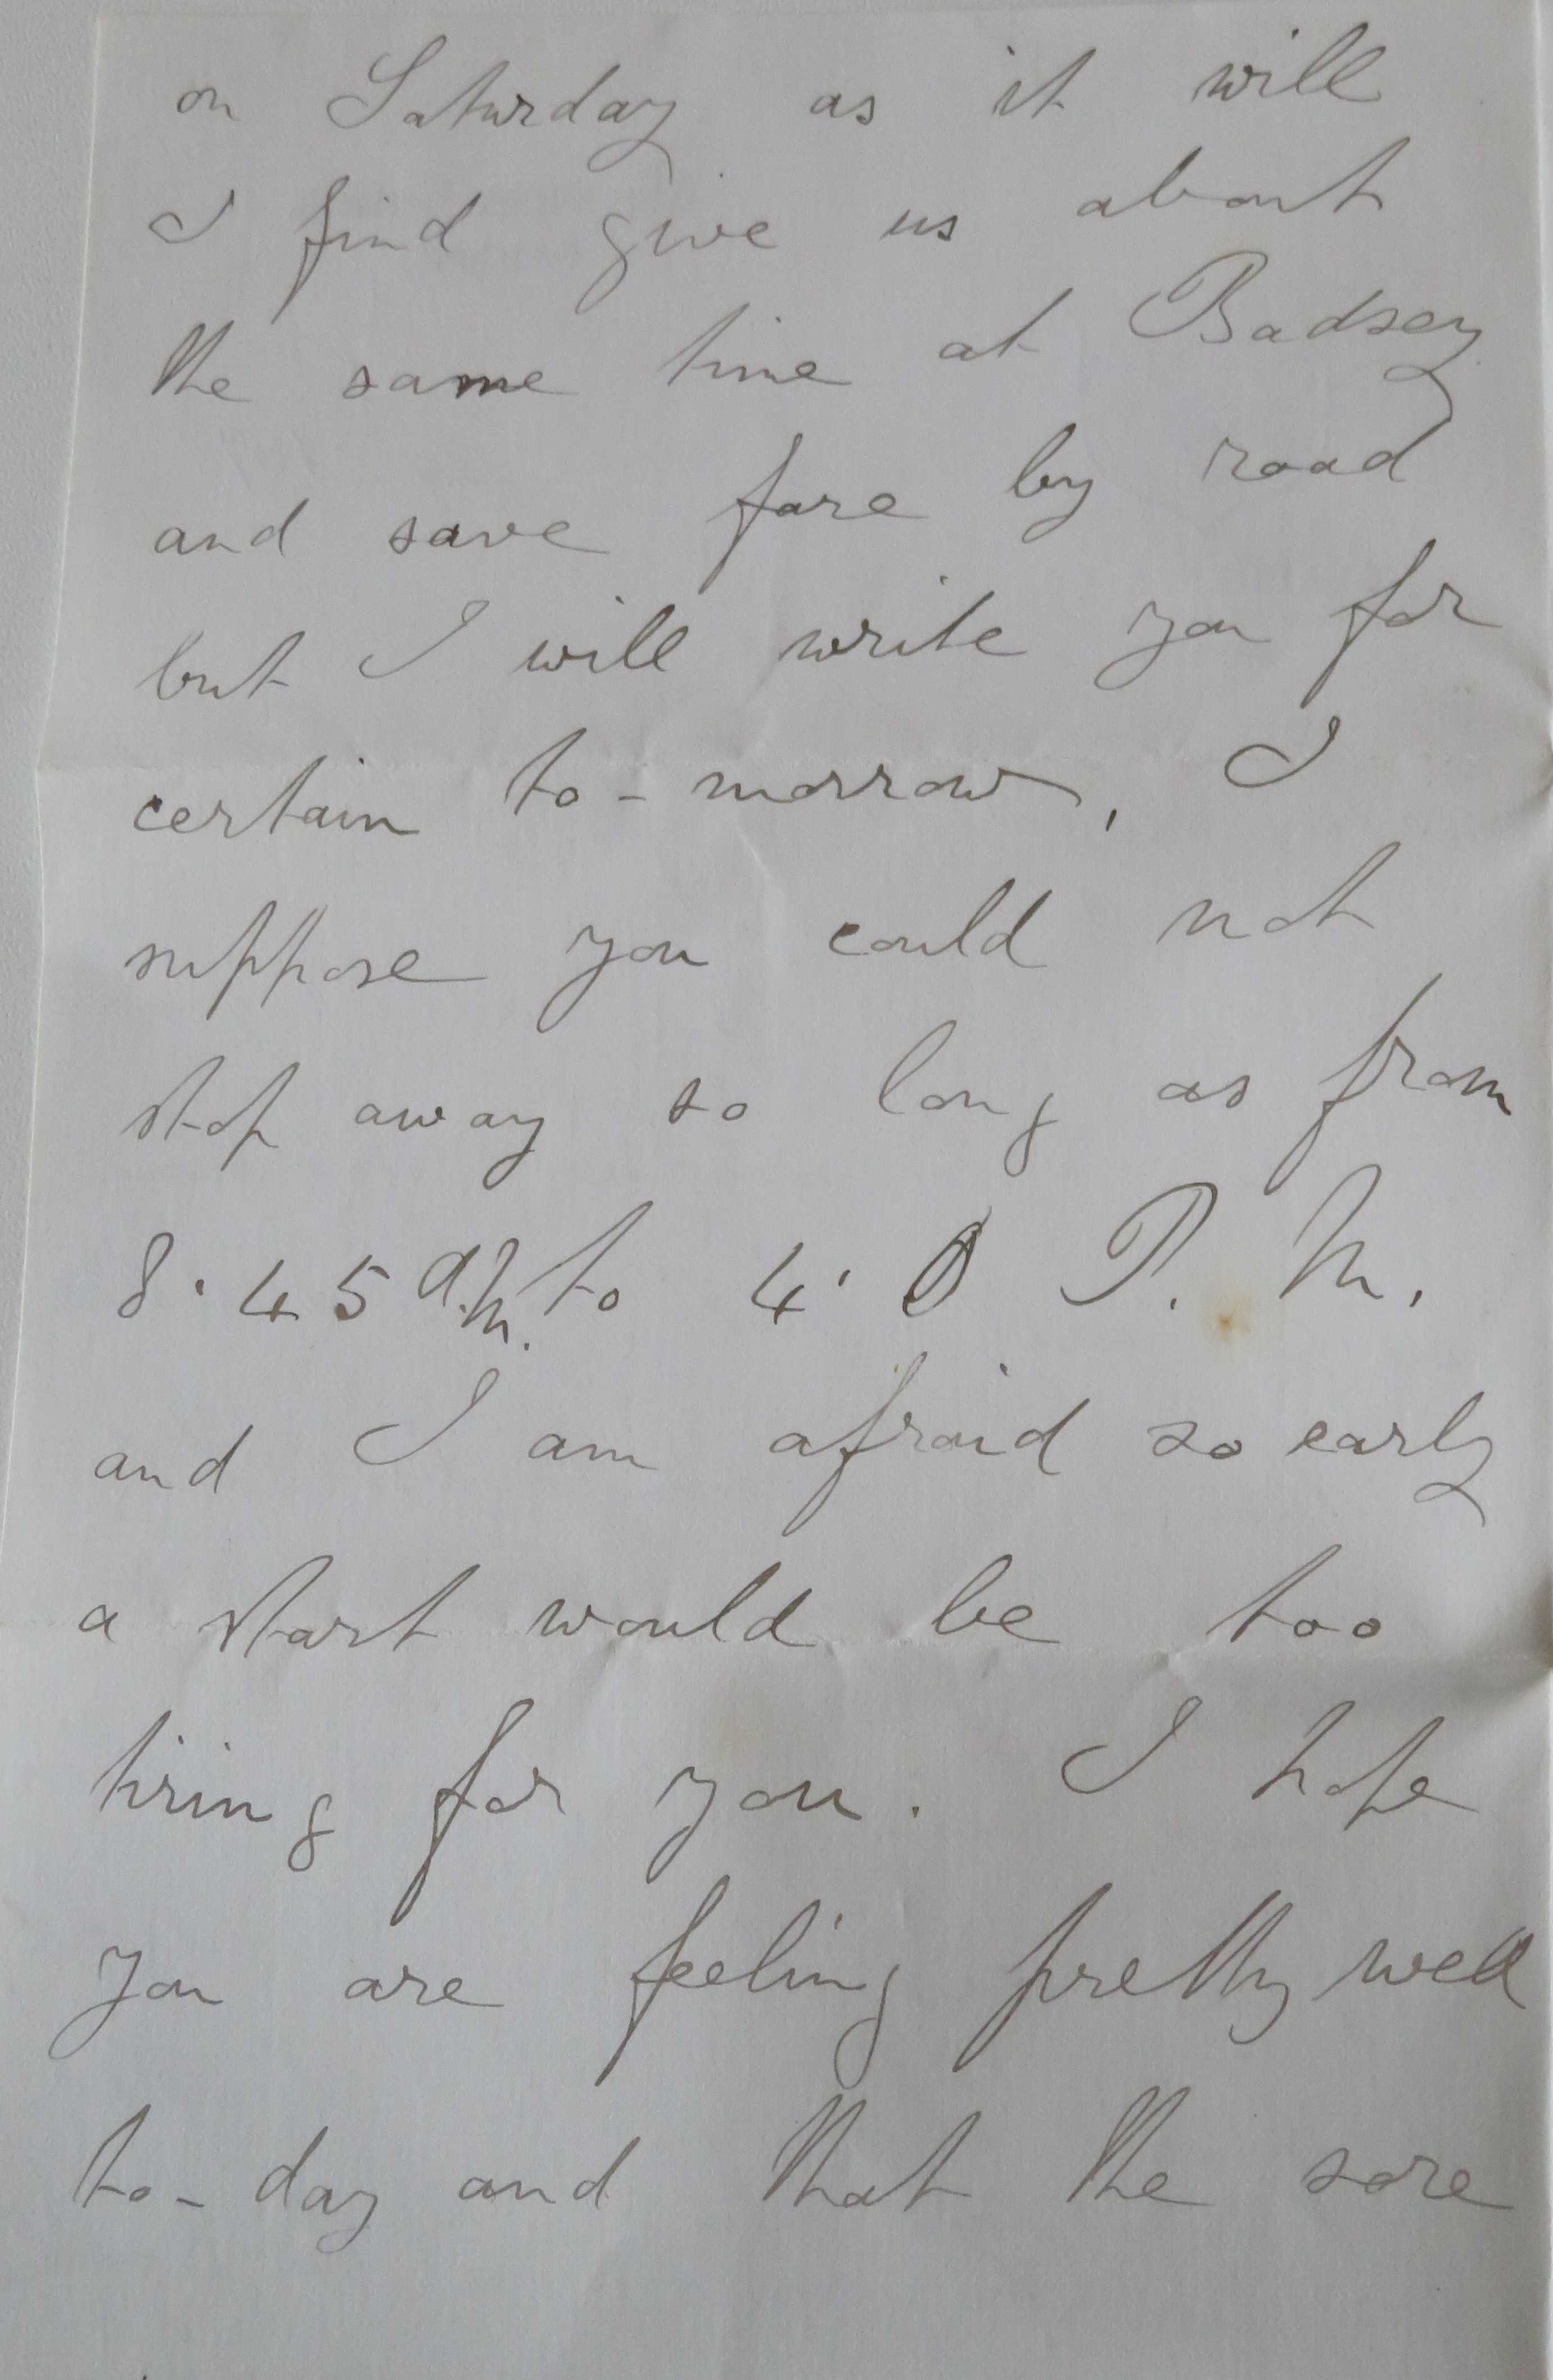 on Saturday as it will
I find give us about
the same time at Badsey
and save fare by road
but I will write you for
certain to-morrow, I
suppose you could not
stop away so long as from
8.45 a.m. to 4.0 P.M.
and I am afraid so early
a start would be too
tiring for you. I hope
you are feeling pretty well
to-day and that the sore